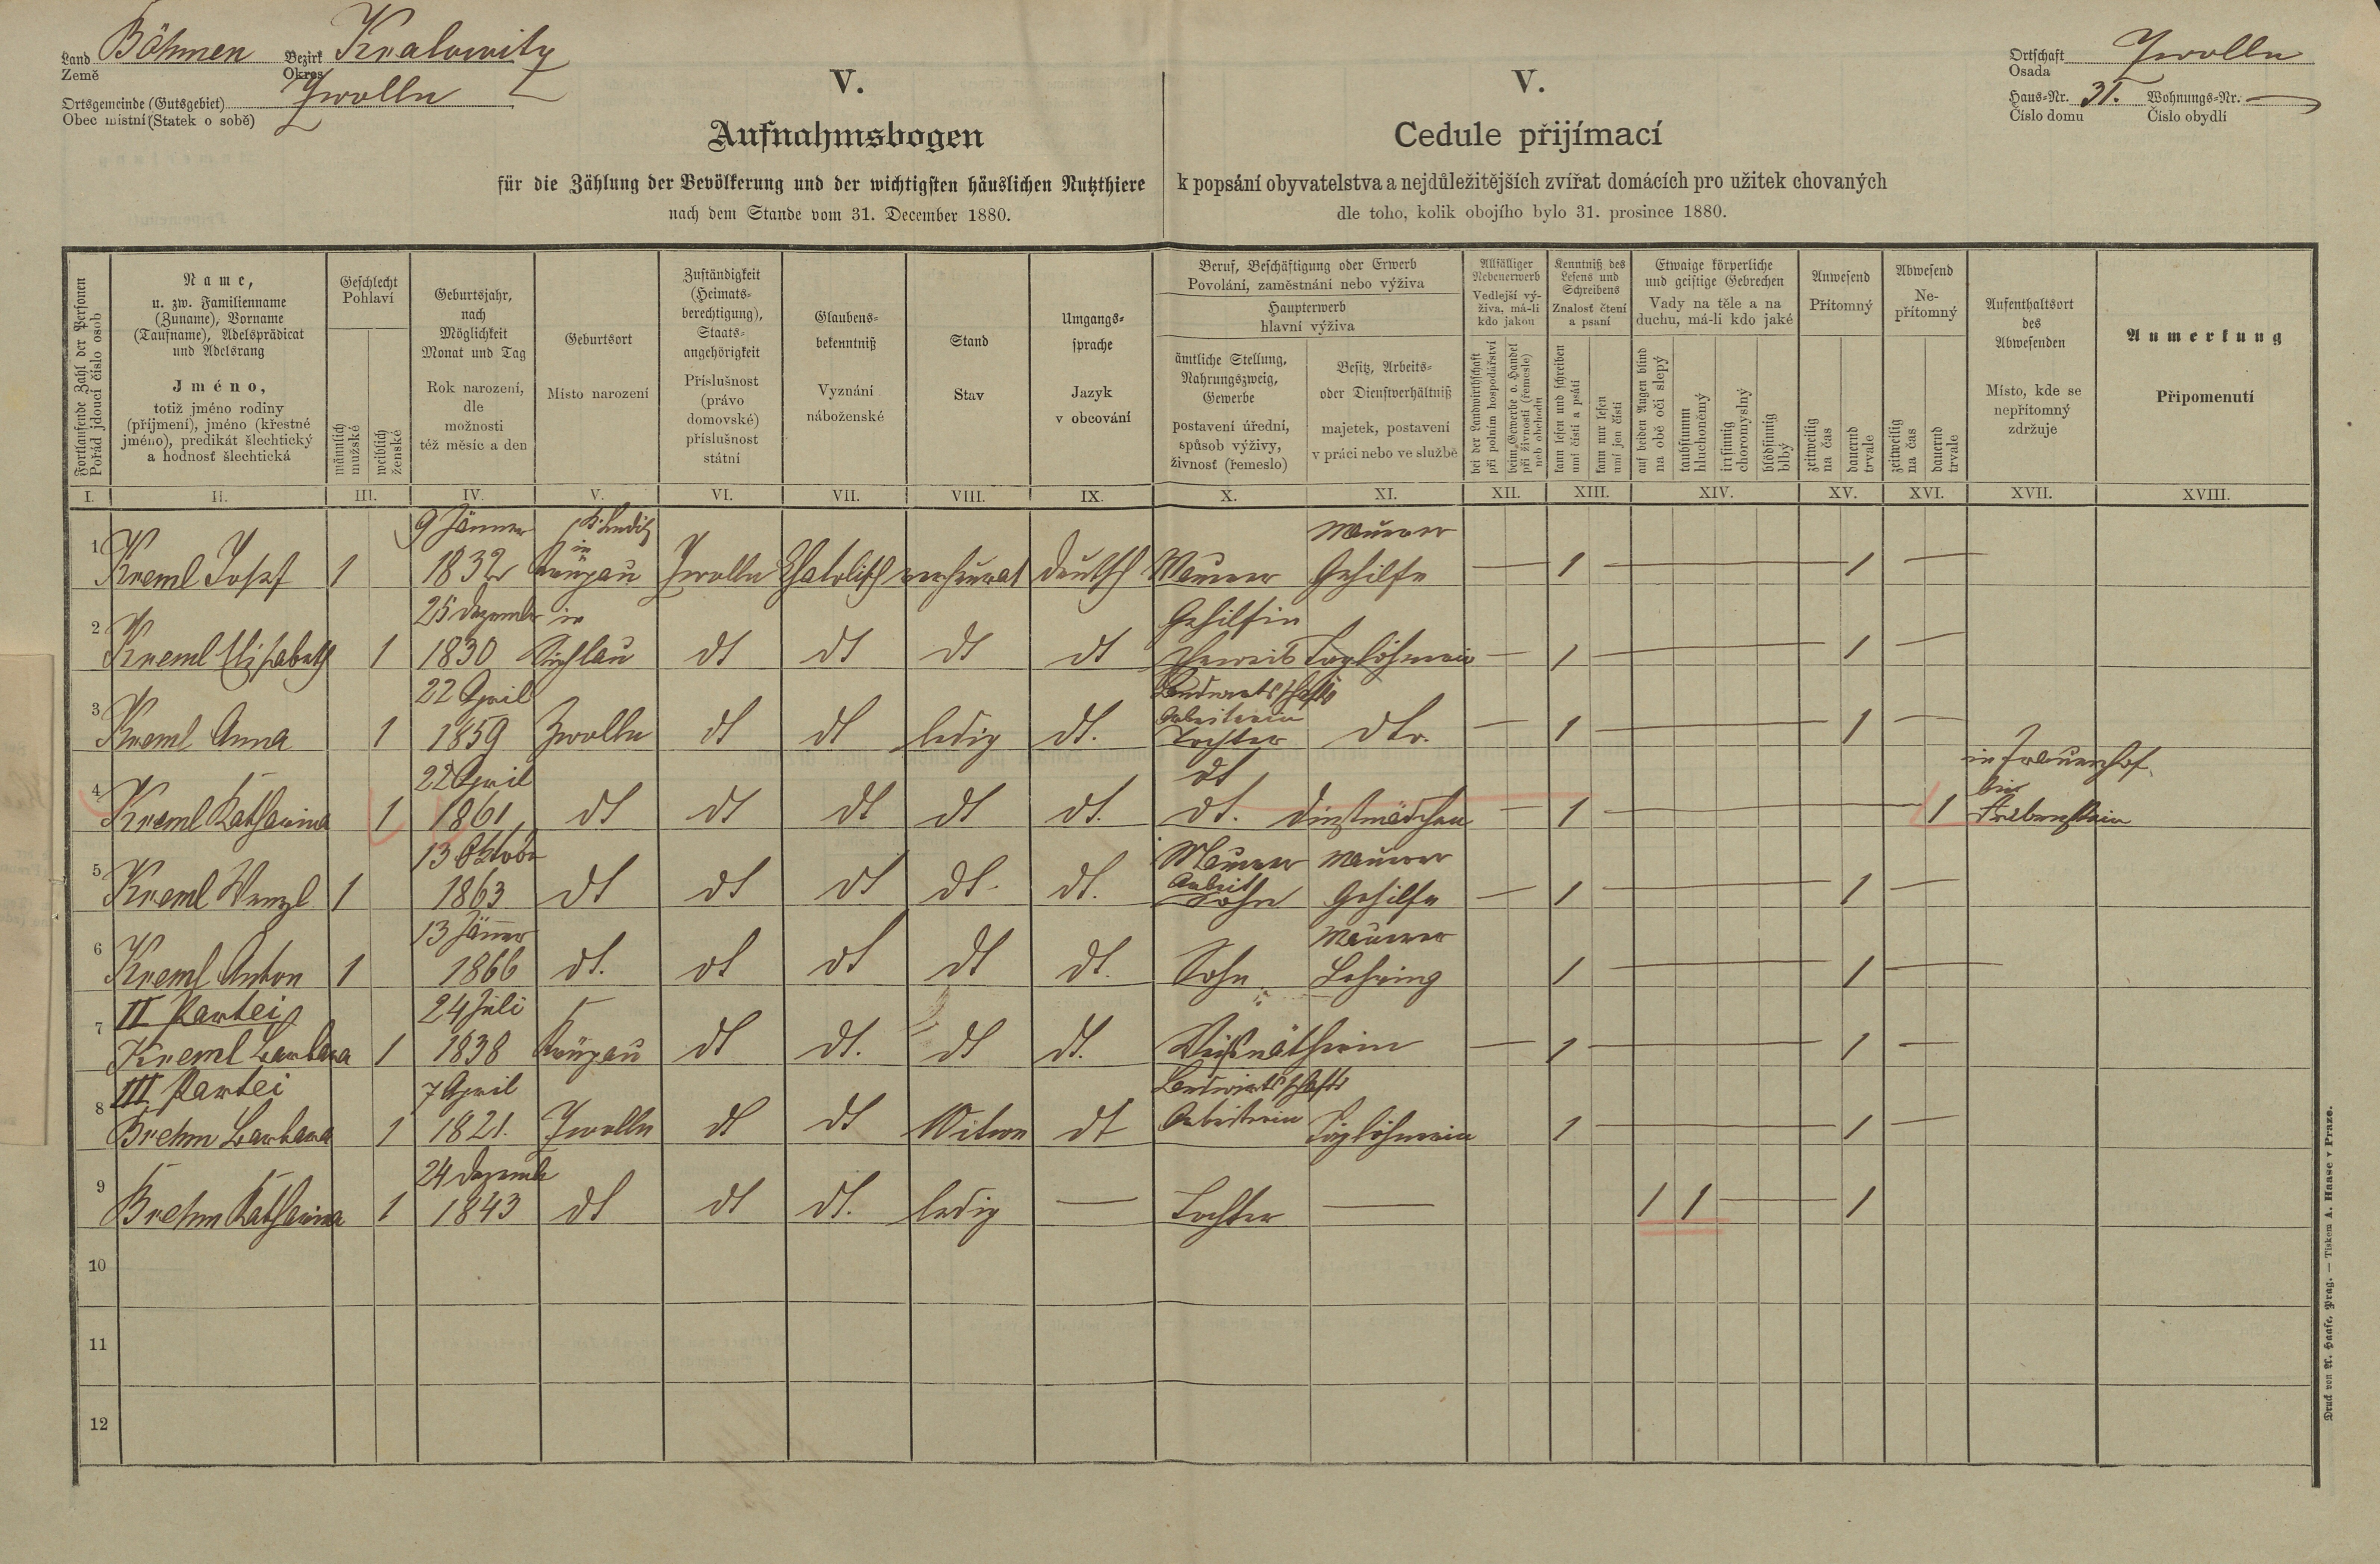 Land Böhmen Bezirk Kralowitz
Země Okres
Ortsgemeinde (Gutsgebiet) Zwolln
Obec místní (Statek o sobě)
Ortschaft Zwolln
Osada
Haus-Nr. 31. Wohnungs-Nr. —
Číslo domu Číslo obydlí
V.
Aufnahmsbogen
für die Zählung der Bevölkerung und der wichtigsten häuslichen Nutzthiere
nach dem Stande vom 31. December 1880.
V.
Cedule přijímací
k popsání obyvatelstva a nejdůležitějších zvířat domácích pro užitek chovaných
dle toho, kolik obojího bylo 31. prosince 1880.
Fortlaufende Zahl der Personen
Pořád jdoucí číslo osob
Name,
u. zw. Familienname
(Zuname), Vorname
(Taufname), Adelsprädicat
und Adelsrang
Jméno,
totiž jméno rodiny
(příjmení), jméno (křestné
jméno), predikát šlechtický
a hodnosť šlechtická
Geschlecht
Pohlaví
männlich
mužské
weiblich
ženské
Geburtsjahr,
nach
Möglichkeit
Monat und Tag
Rok narození,
dle
možnosti
též měsíc a den
Geburtsort
Místo narození
Zuständigkeit
(Heimats-
berechtigung),
Staats-
angehörigkeit
Příslušnost
(právo
domovské)
příslušnost
státní
Glaubens-
bekenntniß
Vyznání
náboženské
Stand
Stav
Umgangs-
sprache
Jazyk
v obcování
Beruf, Beschäftigung oder Erwerb
Povolání, zaměstnání nebo výživa
Haupterwerb
hlavní výživa
ämtliche Stellung,
Nahrungszweig,
Gewerbe
postavení úřední,
spůsob výživy,
živnosť (řemeslo)
Besitz, Arbeits-
oder Dienstverhältniß
majetek, postavení
v práci nebo ve službě
Allfälliger
Nebenerwerb
Vedlejší vý-
živa, má-li
kdo jakou
bei der Landwirthschaft
při polním hospodářství
beim Gewerbe o. Handel
při živnosti (řemesle)
neb obchodu
Kenntniß des
Lesens und
Schreibens
Znalosť čtení
a psaní
kann lesen und schreiben
umí čísti a psáti
kann nur lesen
umí jen čísti
Etwaige körperliche
und geistige Gebrechen
Vady na těle a na
duchu, má-li kdo jaké
auf beiden Augen blind
na obě oči slepý
taubstumm
hluchoněmý
irrsinnig
choromyslný
blödsinnig
blbý
Anwesend
Přítomný
zeitweilig
na čas
dauernd
trvale
Abwesend
Ne-
přítomný
zeitweilig
na čas
dauernd
trvale
Aufenthaltsort
des
Abwesenden
Místo, kde se
nepřítomný
zdržuje
Anmerkung
Připomenutí
I. II. III. IV. V. VI. VII. VIII. IX. X. XI. XII. XIII. XIV. XV. XVI. XVII. XVIII.
9 Jänner Maurer
1 Kreml Josef 1 1832 in Zwolln Katolisch verheurat deutsch Maurer Gehilfe — 1 — 1 —
25 Dezember in Gehilfin
2 Kreml Elisabeth 1 1830 dt dt dt dt Eheweib Taglöhnerin — 1 — 1 —
22 April Landwirtschafts
Arbeiterin
3 Kreml Anna 1 1859 Zwolln dt dt ledig dt. Tochter dto. — 1 — 1 —
22 April dt
4 Kreml Katharina 1 1861 dt dt dt dt dt. dt. Dinstmädchen — 1 — 1
13 Oktober Maurer Maurer
Arbeit
5 Kreml Wenzl 1 1863 dt dt dt dt. dt. Sohn Gehilfe — 1 — 1 —
13 Jänner Maurer
6 Kreml Anton 1 1866 dt. dt dt dt dt. Sohn Lehring 1 — 1 —
II Partei 24 Juli
7 Kreml Barbara 1 1838 dt dt. dt dt. Weißnätherin — 1 — 1 —
III Partei 7 April Landwirtschafts
8 Brehm Barbara 1 1821. Zwolln dt dt Witwe dt Arbeiterin Taglöhnerin 1 — 1 —
24 Dezember
9 Brehm Katharina 1 1843 dt dt dt. ledig — Tochter — 1 1 — 1
10
11
12
Druck von A. Haase, Prag. — Tiskem A. Haase v Praze.